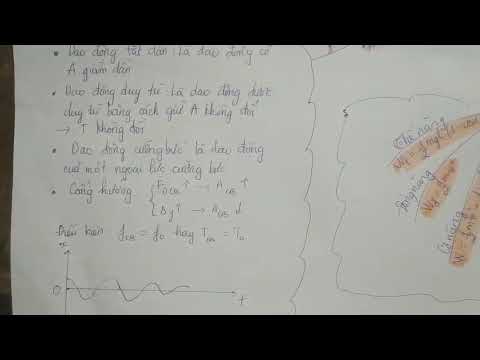 • Dao động tắt dần: Là dao động có
A giảm dần
• Dao động duy trì là dao động được
duy trì bằng cách giữ A không đổi
→ T không đổi
• Dao động cưỡng bức là dao động
của một ngoại lực cưỡng bức
• Cộng hưởng { F₀CB ↑ → A CB ↑
{ Δf ↑ → A CB ↓
Điều kiện f CB = f₀ hay T CB = T₀
x
0
t
Thế năng
Động năng
Cơ năng